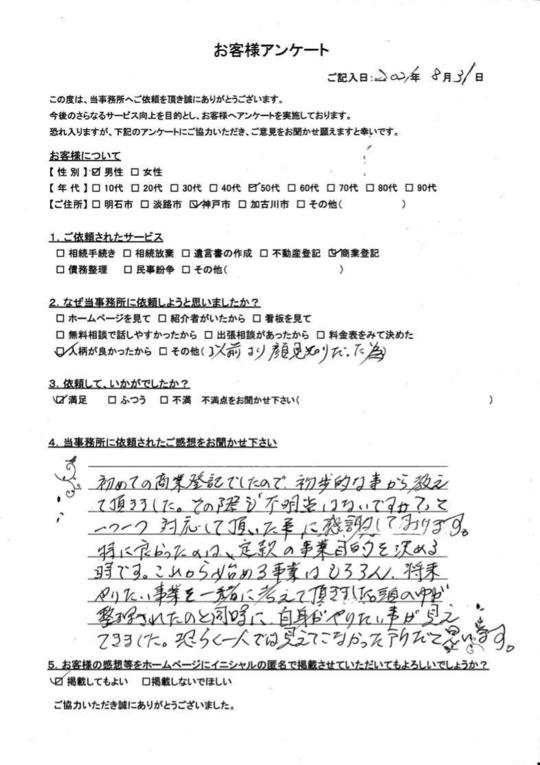 お客様アンケート
ご記入日:2021年 8月31日
この度は、当事務所へご依頼を頂き誠にありがとうございます。
今後のさらなるサービス向上を目的とし、お客様へアンケートを実施しております。
恐れ入りますが、下記のアンケートにご協力いただき、ご意見をお聞かせ願えますと幸いです。
お客様について
【 性 別 】☑ 男性 □ 女性
【 年 代 】□ 10代 □ 20代 □ 30代 □ 40代 ☑ 50代 □ 60代 □ 70代 □ 80代 □ 90代
【ご住所】□ 明石市 □ 淡路市 ☑ 神戸市 □ 加古川市 □ その他( )
1. ご依頼されたサービス
□ 相続手続き □ 相続放棄 □ 遺言書の作成 □ 不動産登記 ☑ 商業登記
□ 債務整理 □ 民事紛争 □ その他( )
2. なぜ当事務所に依頼しようと思いましたか?
□ ホームページを見て □ 紹介者がいたから □ 看板を見て
□ 無料相談で話しやすかったから □ 出張相談があったから □ 料金表をみて決めた
☑ 人柄が良かったから □ その他(以前より顔見知りだった為)
3. 依頼して、いかがでしたか?
☑ 満足 □ ふつう □ 不満 不満点をお聞かせ下さい( )
4. 当事務所に依頼されたご感想をお聞かせ下さい
初めての商業登記でしたので、初歩的な事から教え
て頂きました。その際も不明点はないですか?と
一つ一つ対応して頂いた事に感謝しております。
特に良かったのは、定款の事業目的を決める
時です。これから始める事業はもちろん、将来
やりたい事業を一緒に考えて頂きました。頭の中が
整理されたのと同時に、自身がやりたい事が見え
てきました。恐らく一人では見えてこなかった所だと思います。
5. お客様の感想等をホームページにイニシャルの匿名で掲載させていただいてもよろしいでしょうか?
☑ 掲載してもよい □ 掲載しないでほしい
ご協力いただき誠にありがとうございました。